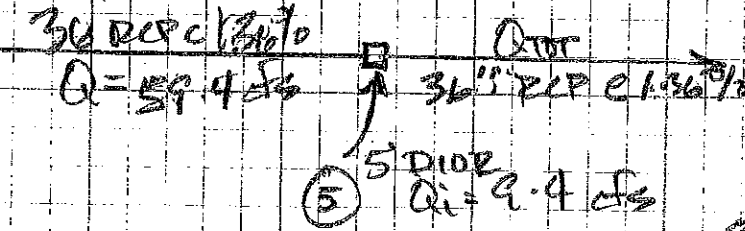 36" RCP @ 1.36%
Q = 59.4 cfs
QTOT
36" RCP @ 1.36%
5' D10R
Qi = 9.4 cfs
5